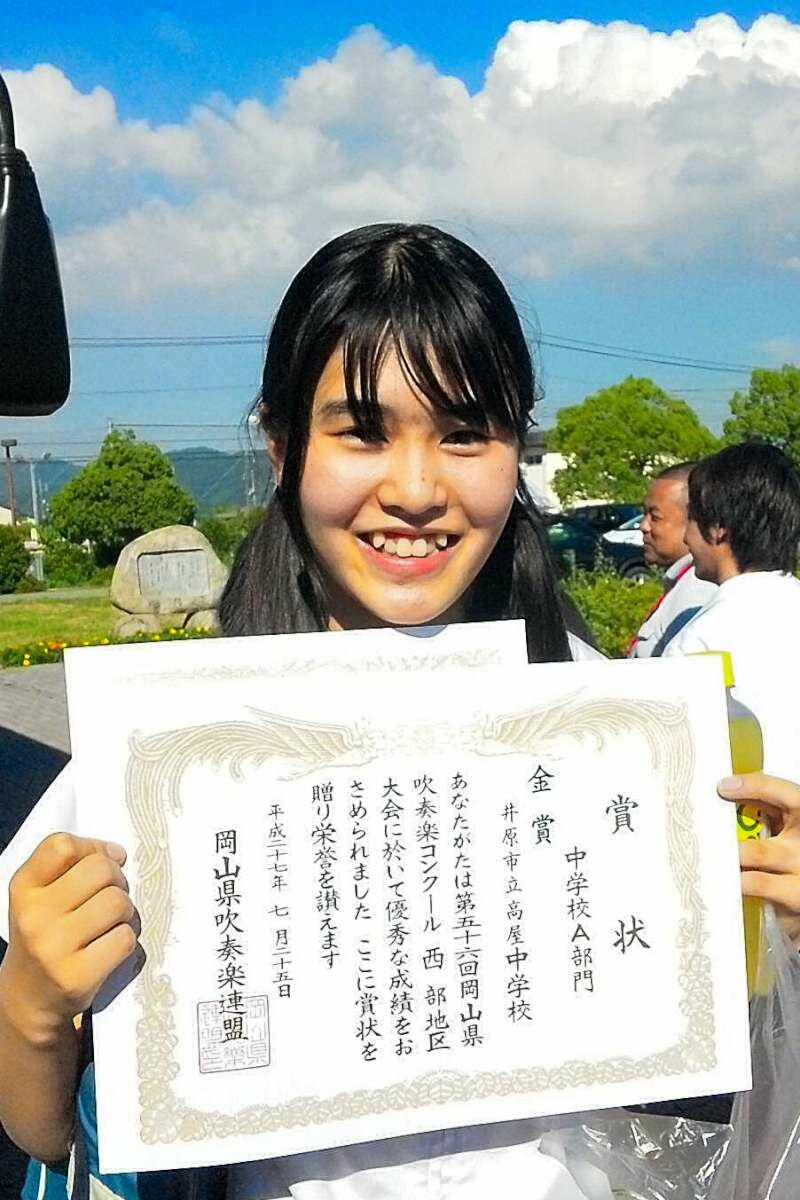 賞状
中学校A部門
金賞
井原市立高屋中学校
あなたがたは第五十六回岡山県
吹奏楽コンクール 西部地区
大会に於いて優秀な成績をお
さめられました ここに賞状を
贈り栄誉を讃えます
平成二十七年 七月二十五日
岡山県吹奏楽連盟